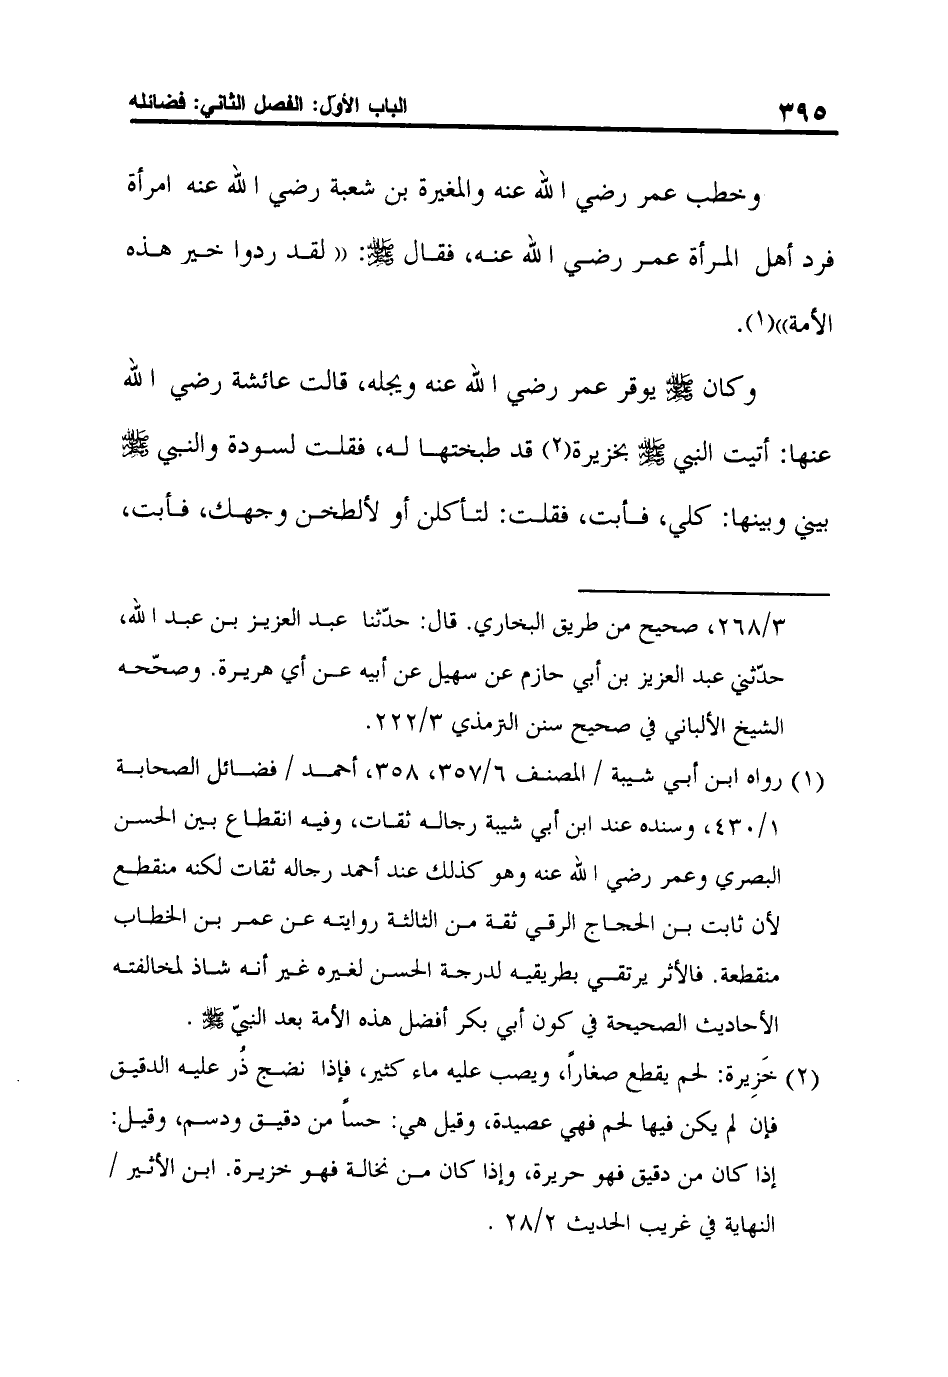 ٣٩٥ الباب الأول: الفصل الثاني: فضائله
وخطب عمر رضي الله عنه والمغيرة بن شعبة رضي الله عنه امرأة
فرد أهل المرأة عمر رضي الله عنه، فقال ﷺ: ((لقد ردوا خير هذه
الأمة))(١).
وكان ﷺ يوقر عمر رضي الله عنه ويجله، قالت عائشة رضي الله
عنها: أتيت النبي ﷺ بخزيرة(٢) قد طبختها له، فقلت لسودة والنبي ﷺ
بيني وبينها: كلي، فأبت، فقلت: لتأكلن أو لألطخن وجهك، فأبت،
٢٦٨/٣، صحيح من طريق البخاري. قال: حدّثنا عبد العزيز بن عبد الله،
حدّثني عبد العزيز بن أبي حازم عن سهيل عن أبيه عن أي هريرة. وصحّحه
الشيخ الألباني في صحيح سنن الترمذي ٢٢٢/٣.
(١) رواه ابن أبي شيبة / المصنف ٣٥٧/٦، ٣٥٨، أحمد / فضائل الصحابة
٤٣٠/١، وسنده عند ابن أبي شيبة رجاله ثقات، وفيه انقطاع بين الحسن
البصري وعمر رضي الله عنه وهو كذلك عند أحمد رجاله ثقات لكنه منقطع
لأن ثابت بن الحجاج الرقي ثقة من الثالثة روايته عن عمر بن الخطاب
منقطعة. فالأثر يرتقي بطريقيه لدرجة الحسن لغيره غير أنه شاذ لمخالفته
الأحاديث الصحيحة في كون أبي بكر أفضل هذه الأمة بعد النبيّ ﷺ .
(٢) خَزِيرة: لحم يقطع صغاراً، ويصب عليه ماء كثير، فإذا نضج ذُر عليه الدقيق
فإن لم يكن فيها لحم فهي عصيدة، وقيل هي: حساً من دقيق ودسم، وقيل:
إذا كان من دقيق فهو حريرة، وإذا كان من نخالة فهو خزيرة. ابن الأثير /
النهاية في غريب الحديث ٢٨/٢ .